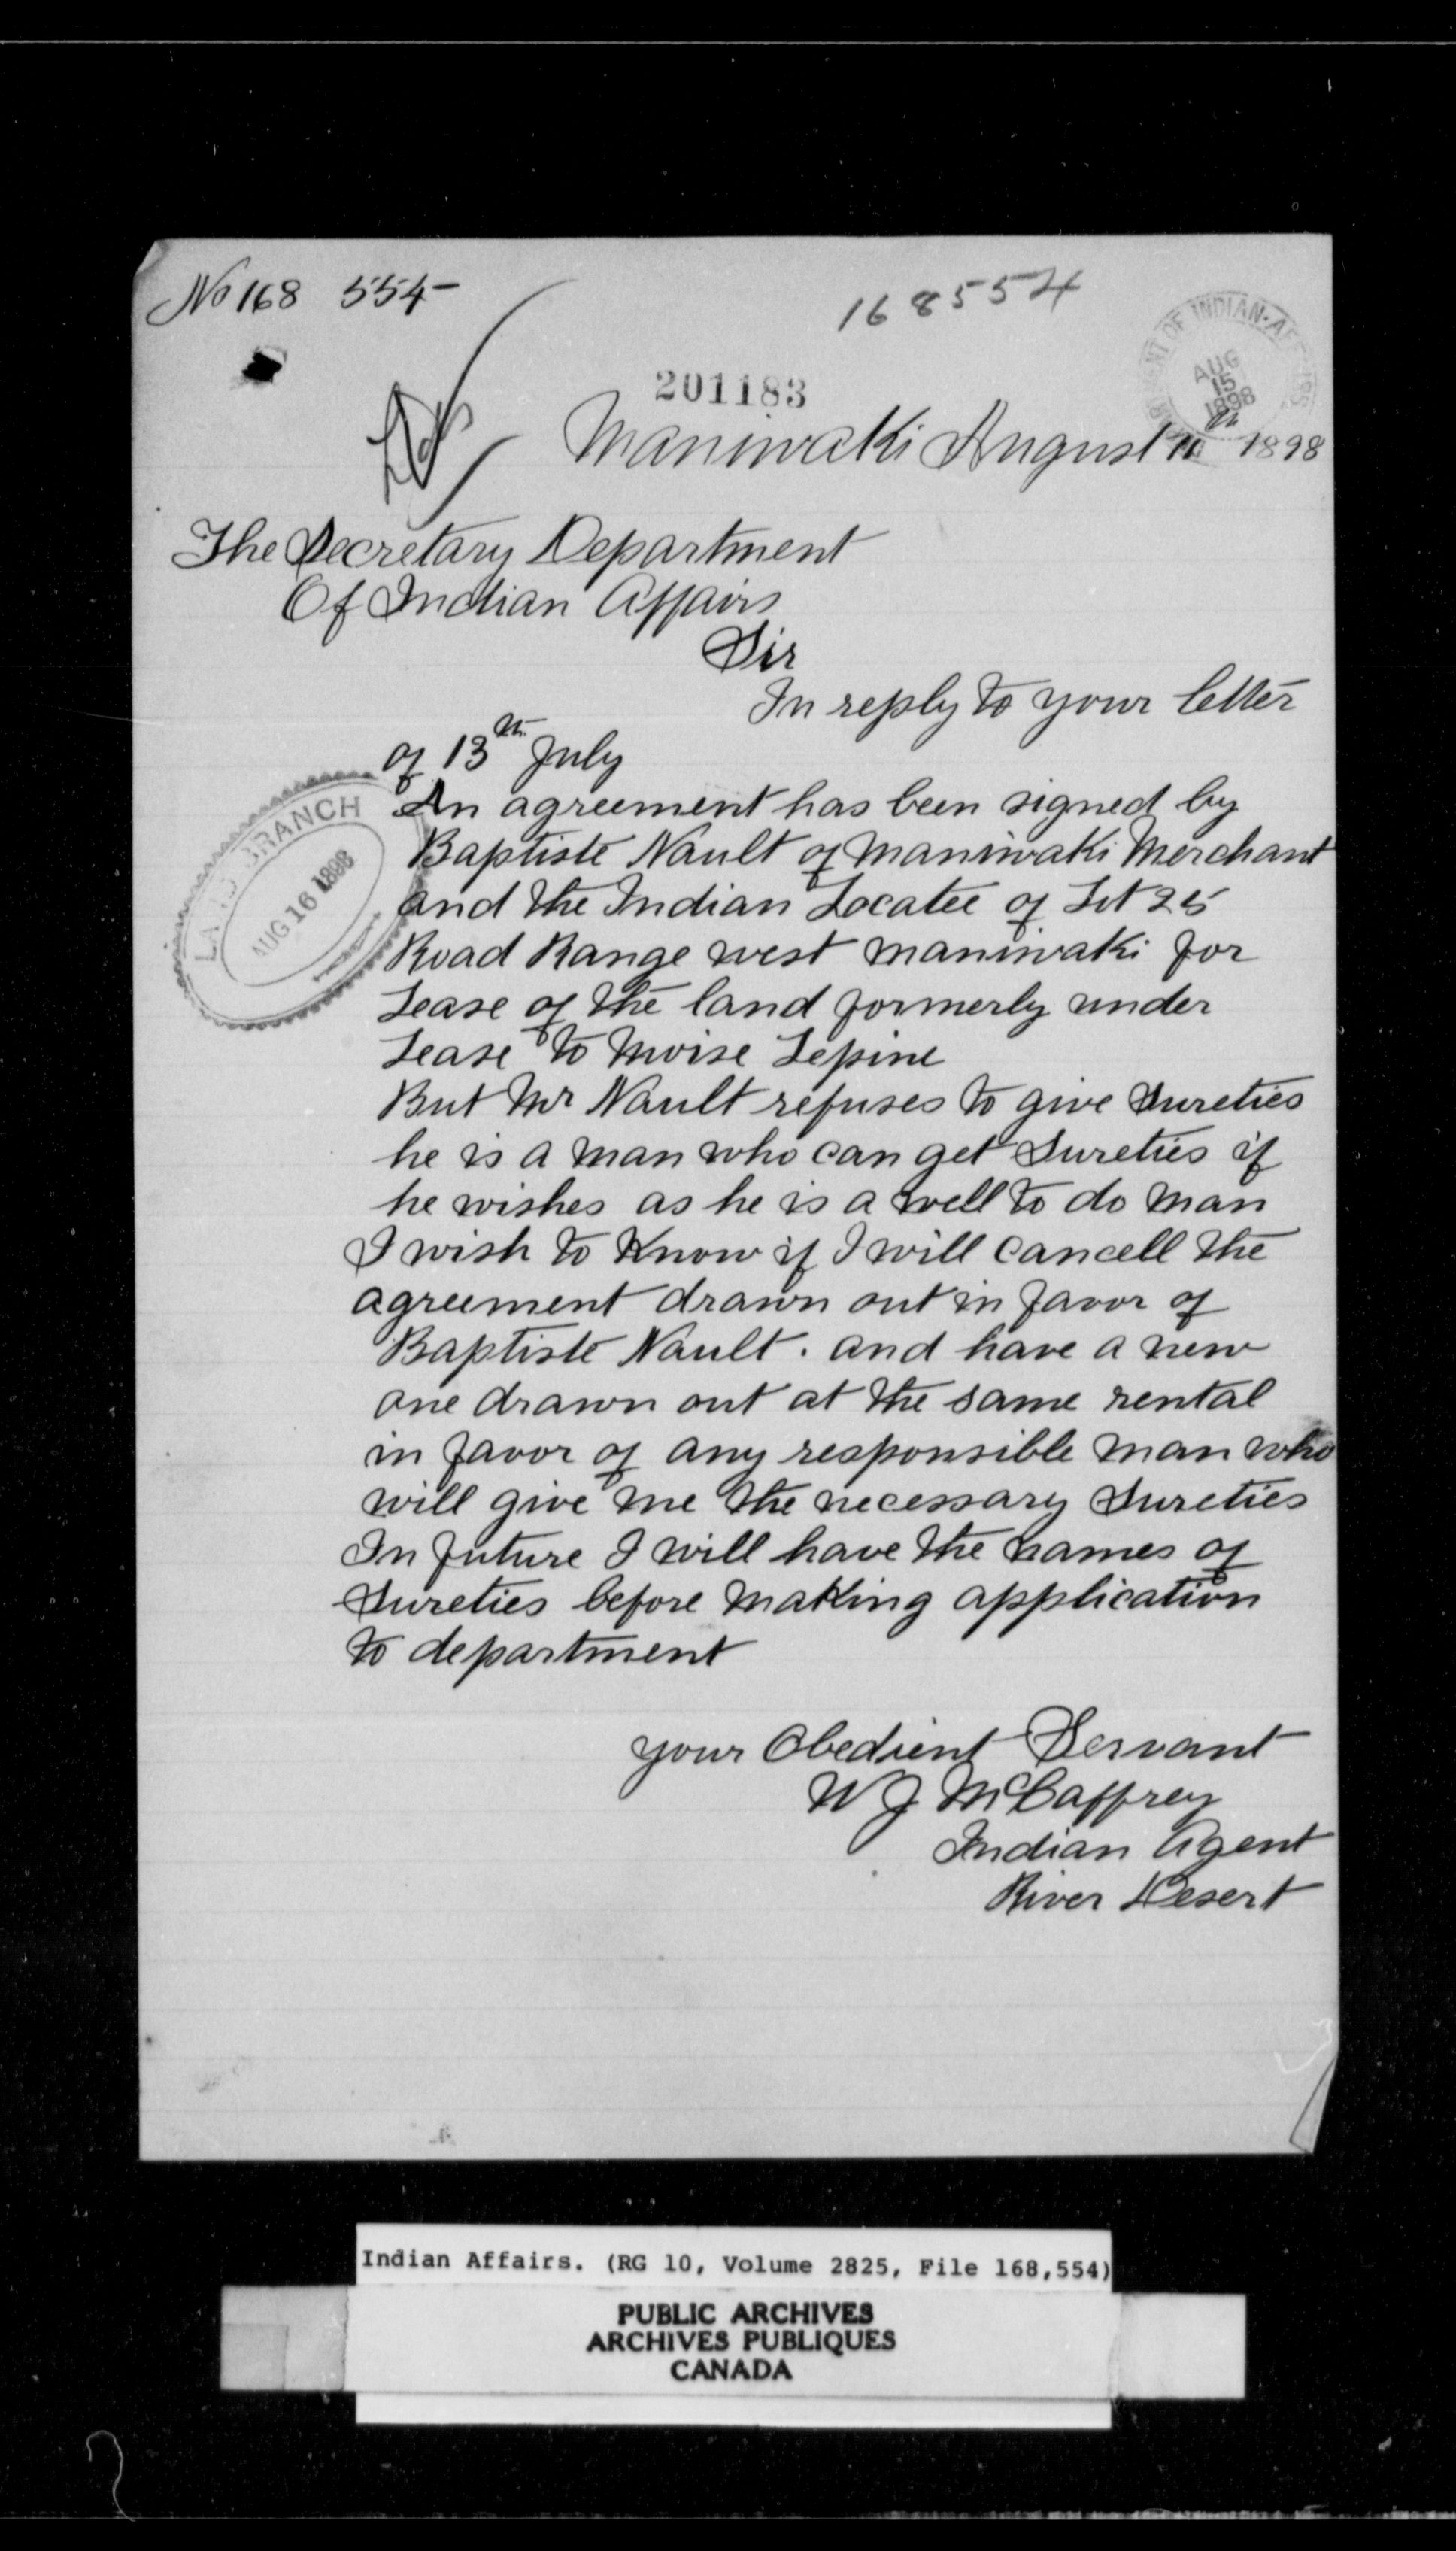 No 168 554
168554
DEPARTMENT OF INDIAN AFFAIRS
AUG
15
1898
201183
Maniwaki August 11th 1898
The Secretary Department
Of Indian Affairs
Sir
In reply to your letter
of 13th July
An agreement has been signed by
Baptiste Nault of Maniwaki Merchant
and the Indian Locatee of Lot 25
Road Range west Maniwaki for
Lease of the land formerly under
Lease to Moise Lepine
But Mr Nault refuses to give Sureties
he is a man who can get Sureties if
he wishes as he is a well to do man
I wish to Know if I will cancell the
agreement drawn out in favor of
Baptiste Nault. and have a new
one drawn out at the same rental
in favor of any responsible man who
will give me the necessary Sureties
In future I will have the names of
Sureties before making application
to department
LANDS BRANCH
AUG 16 1898
your Obedient Servant
W J McCaffrey
Indian Agent
River Desert
Indian Affairs. (RG 10, Volume 2825, File 168,554)
PUBLIC ARCHIVES
ARCHIVES PUBLIQUES
CANADA